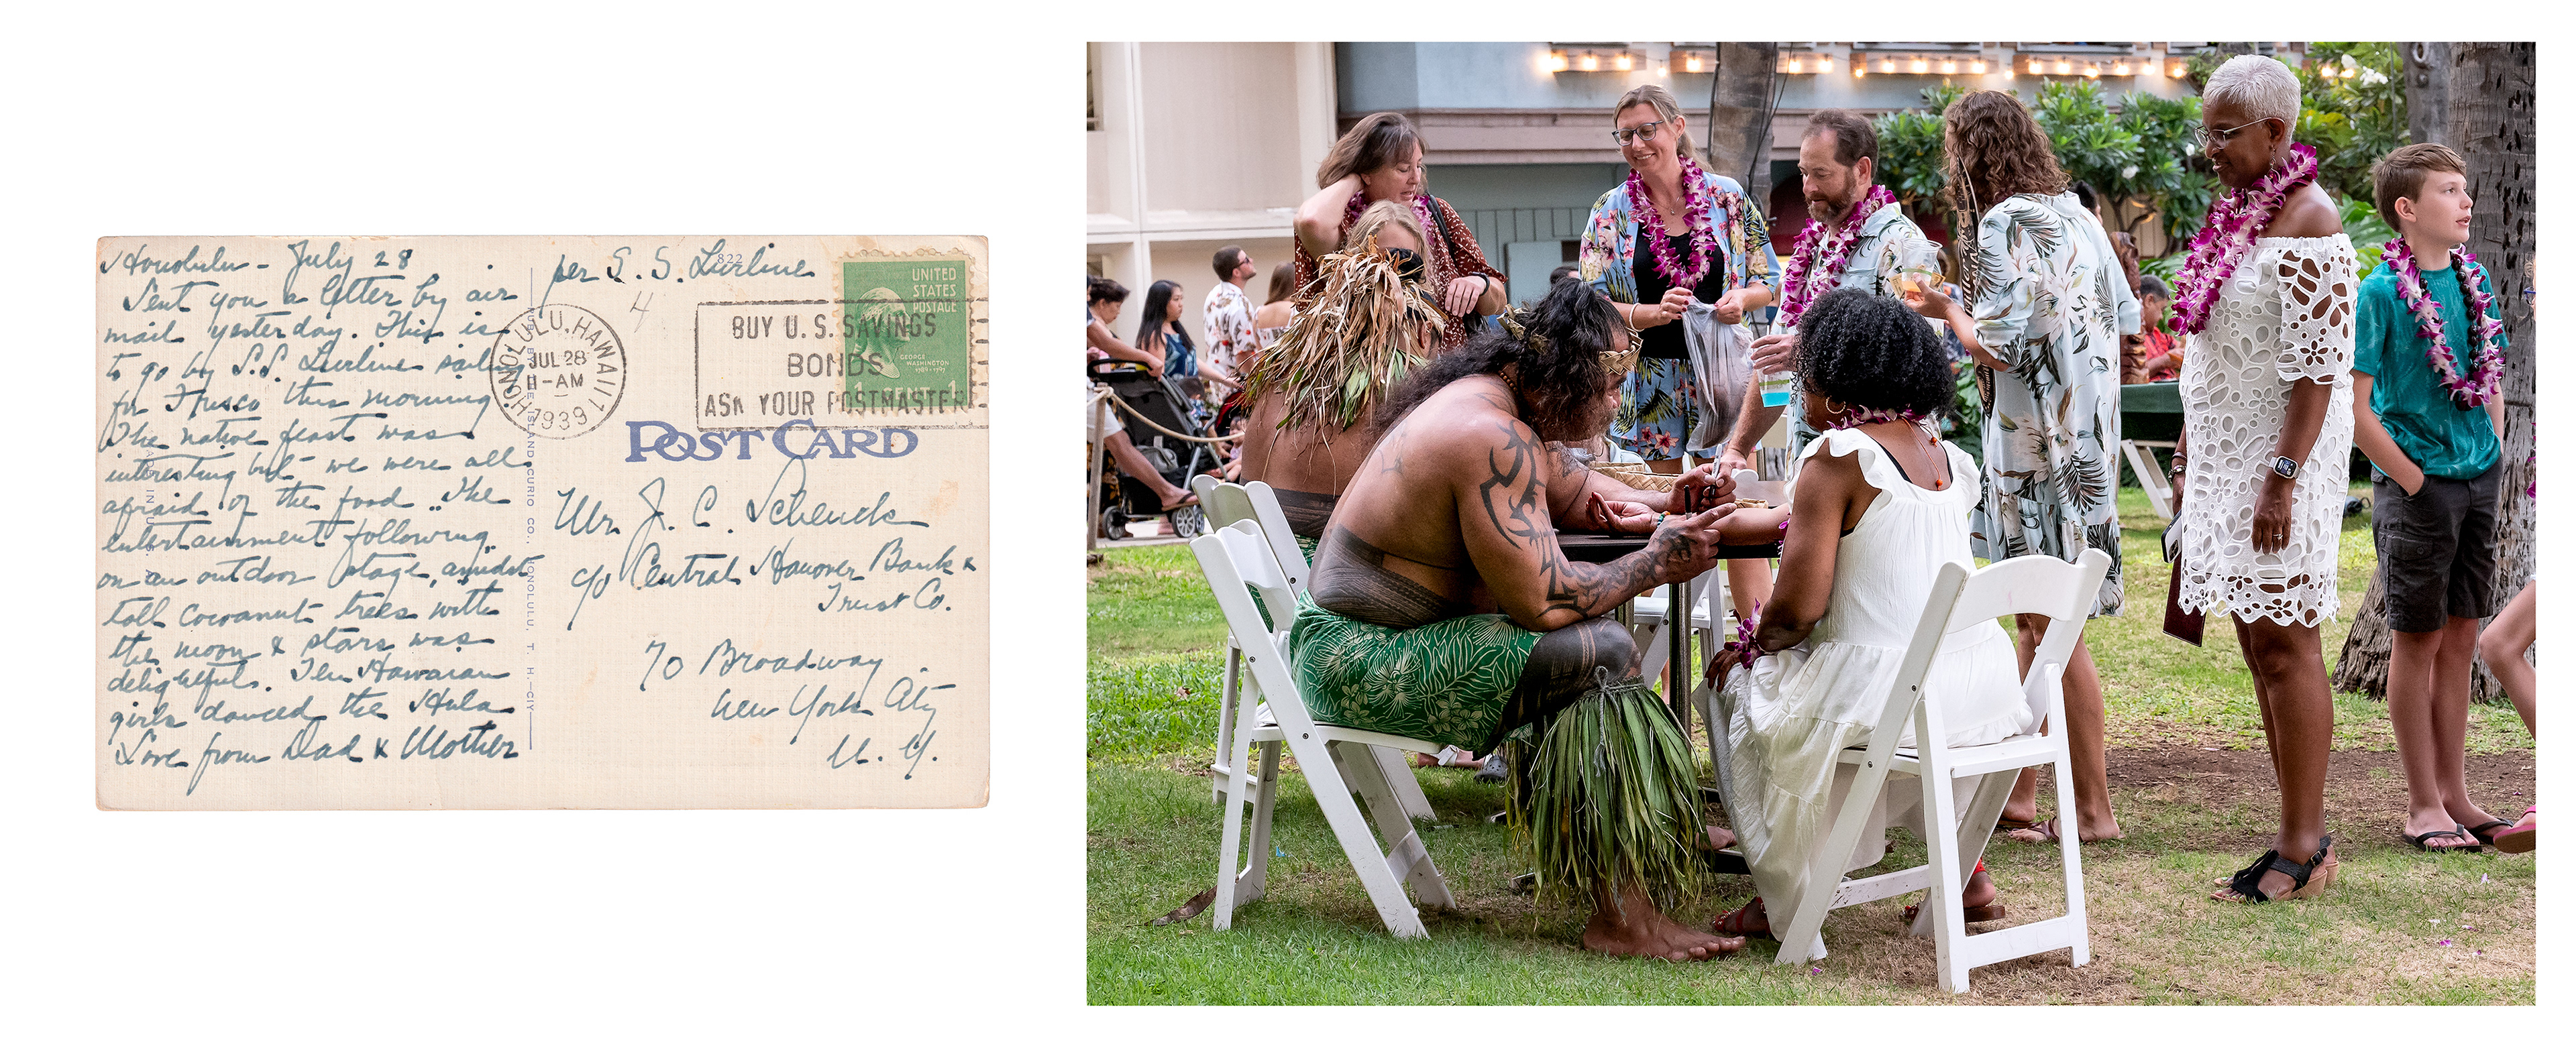 Honolulu - July 28
Sent you a letter by air
mail yesterday. This is
to go by S.S. Lurline sailing
for Frisco this morning.
The native feast was
interesting but we were all
afraid of the food. The
entertainment following
on an outdoor stage, amidst
tall cocoanut trees with
the moon & stars was
delightful. Ten Hawaian
girls danced the Hula
Love from Dad & Mother
per S. S. Lurline
822
4
HONOLULU, HAWAII
JUL 28
11-AM
1939
BUY U.S. SAVINGS
BONDS
ASK YOUR POSTMASTER
UNITED
STATES
POSTAGE
GEORGE
WASHINGTON
1789-1797
1 CENT 1
POST CARD
Mr J. C. Schenck
c/o Central Hanover Bank &
Trust Co.
70 Broadway
New York City
N. Y.
PUB. BY THE ISLAND CURIO CO., HONOLULU, T. H.—CIY